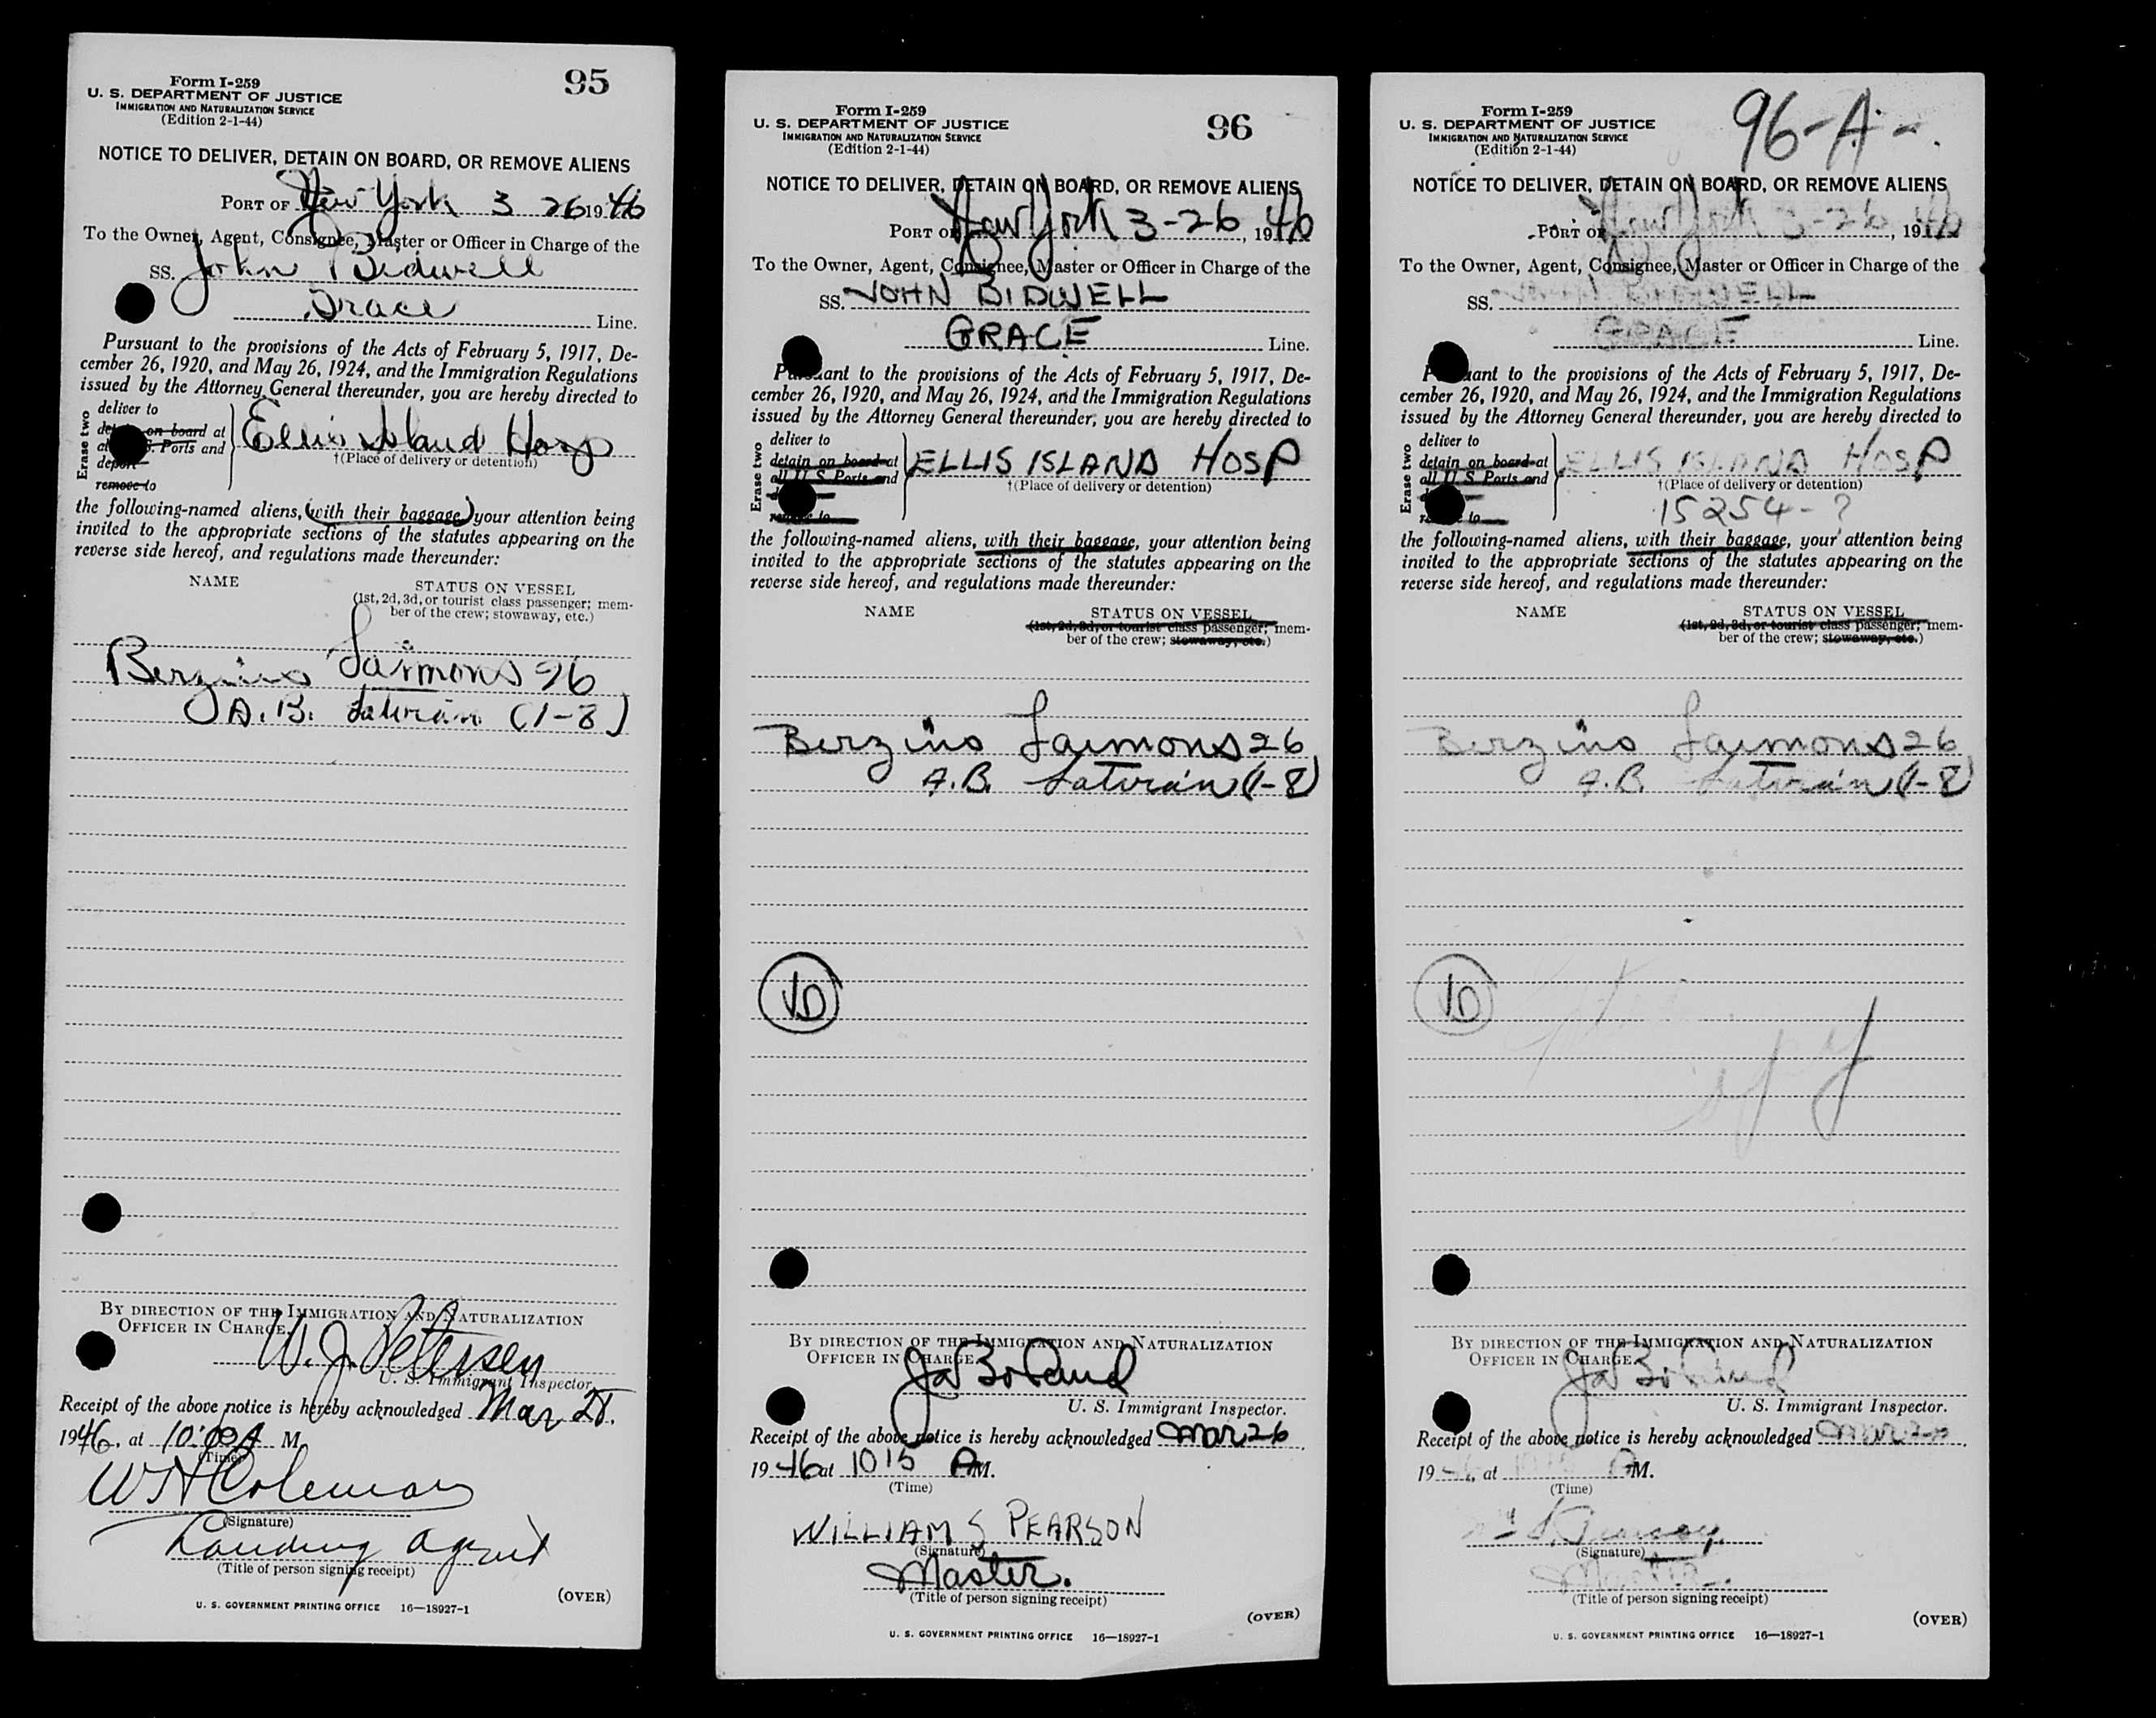 Form I-259
95
U. S. DEPARTMENT OF JUSTICE
IMMIGRATION AND NATURALIZATION SERVICE
(Edition 2-1-44)
NOTICE TO DELIVER, DETAIN ON BOARD, OR REMOVE ALIENS
PORT OF New York 3 26 1946
To the Owner, Agent, Consignee, Master or Officer in Charge of the
SS. John Bidwell
Grace Line.
Pursuant to the provisions of the Acts of February 5, 1917, De-
cember 26, 1920, and May 26, 1924, and the Immigration Regulations
issued by the Attorney General thereunder, you are hereby directed to
Erase two
deliver to
on board at
S. Ports and
deport
remove to
Ellis Island Hosp
†(Place of delivery or detention)
the following-named aliens, (with their baggage) your attention being
invited to the appropriate sections of the statutes appearing on the
reverse side hereof, and regulations made thereunder:
NAME STATUS ON VESSEL
(1st, 2d, 3d, or tourist class passenger; mem-
ber of the crew; stowaway, etc.)
Berzins Laimons 26
A.B. Latvian (1-8)
BY DIRECTION OF THE IMMIGRATION AND NATURALIZATION
OFFICER IN CHARGE.
W. J. Petersen
U. S. Immigrant Inspector.
Receipt of the above notice is hereby acknowledged Mar 28,
1946, at 10:00 A M.
(Time)
W H Coleman
(Signature)
Landing agent
(Title of person signing receipt)
(OVER)
U. S. GOVERNMENT PRINTING OFFICE 16—18927-1
Form I-259
96
U. S. DEPARTMENT OF JUSTICE
IMMIGRATION AND NATURALIZATION SERVICE
(Edition 2-1-44)
NOTICE TO DELIVER, DETAIN ON BOARD, OR REMOVE ALIENS
PORT OF New York 3-26, 1946
To the Owner, Agent, Consignee, Master or Officer in Charge of the
SS. JOHN BIDWELL
GRACE Line.
Pursuant to the provisions of the Acts of February 5, 1917, De-
cember 26, 1920, and May 26, 1924, and the Immigration Regulations
issued by the Attorney General thereunder, you are hereby directed to
Erase two
deliver to
detain on board at
all U S Ports and
to
ELLIS ISLAND HOSP
†(Place of delivery or detention)
the following-named aliens, with their baggage, your attention being
invited to the appropriate sections of the statutes appearing on the
reverse side hereof, and regulations made thereunder:
NAME STATUS ON VESSEL
(1st, 2d, 3d, or tourist class passenger; mem-
ber of the crew; stowaway, etc.)
Berzins Laimons 26
A.B. Latvian (1-8)
VD
BY DIRECTION OF THE IMMIGRATION AND NATURALIZATION
OFFICER IN CHARGE.
U. S. Immigrant Inspector.
Receipt of the above notice is hereby acknowledged Mar 26,
1946 at 1015 AM.
(Time)
WILLIAM S PEARSON
(Signature)
Master.
(Title of person signing receipt)
(OVER)
U. S. GOVERNMENT PRINTING OFFICE 16—18927-1
Form I-259
96-A-
U. S. DEPARTMENT OF JUSTICE
IMMIGRATION AND NATURALIZATION SERVICE
(Edition 2-1-44)
NOTICE TO DELIVER, DETAIN ON BOARD, OR REMOVE ALIENS
PORT OF New York 3-26, 1946
To the Owner, Agent, Consignee, Master or Officer in Charge of the
SS. JOHN BIDWELL
GRACE Line.
Pursuant to the provisions of the Acts of February 5, 1917, De-
cember 26, 1920, and May 26, 1924, and the Immigration Regulations
issued by the Attorney General thereunder, you are hereby directed to
Erase two
deliver to
detain on board at
all U S Ports and
to
ELLIS ISLAND HOSP
†(Place of delivery or detention)
15254-?
the following-named aliens, with their baggage, your attention being
invited to the appropriate sections of the statutes appearing on the
reverse side hereof, and regulations made thereunder:
NAME STATUS ON VESSEL
(1st, 2d, 3d, or tourist class passenger; mem-
ber of the crew; stowaway, etc.)
Berzins Laimons 26
A.B. Latvian (1-8)
VD
BY DIRECTION OF THE IMMIGRATION AND NATURALIZATION
OFFICER IN CHARGE.
U. S. Immigrant Inspector.
Receipt of the above notice is hereby acknowledged Mar 26,
1946, at 1015 AM.
(Time)
(Signature)
Master.
(Title of person signing receipt)
(OVER)
U. S. GOVERNMENT PRINTING OFFICE 16—18927-1